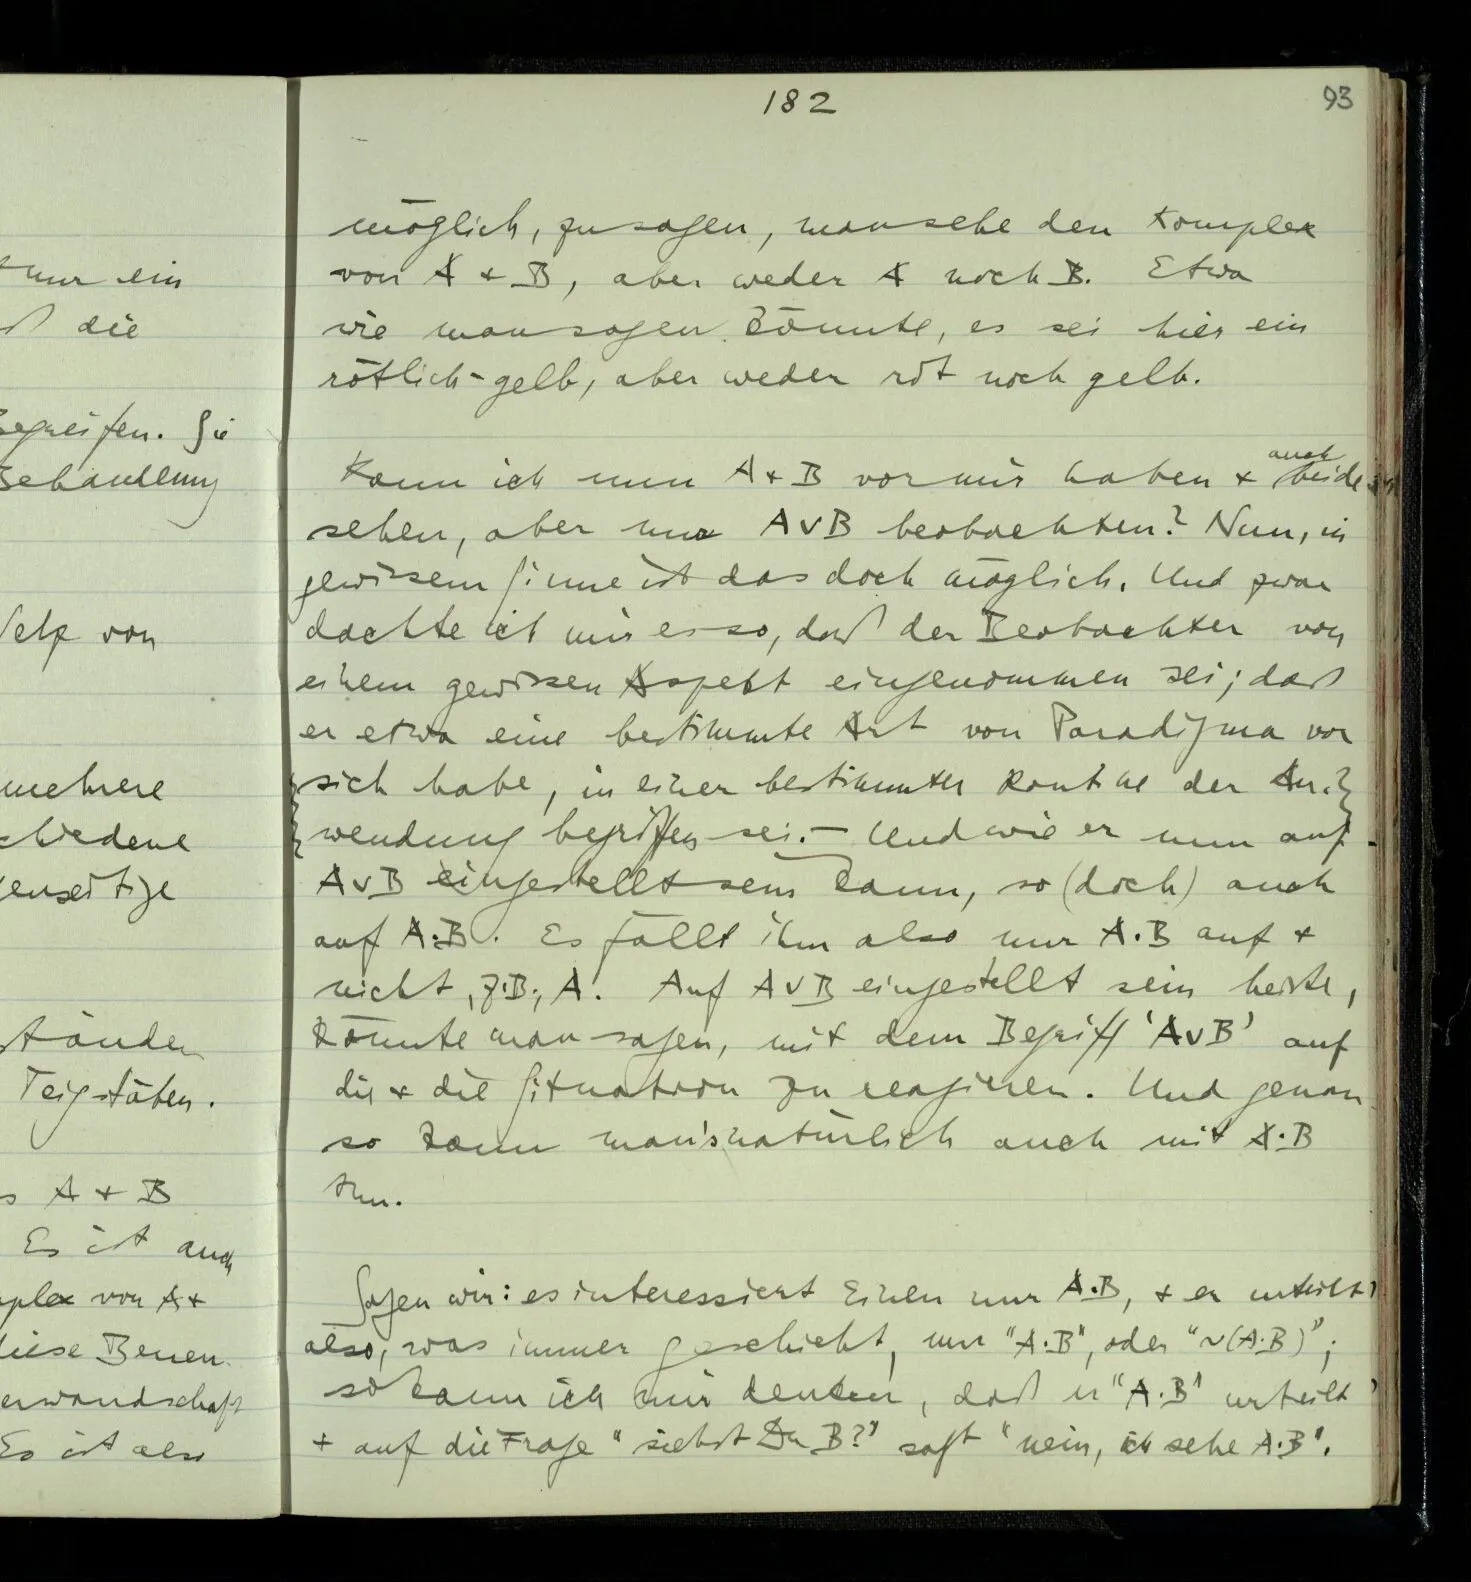 182
93
nur ein
die
Begreifen. Sie
Behandlung
von
mehrere
schiedene
genseitige
ständen
Teigstäben.
A + B
Es ist auch
plex von A +
diese Benen-
erwandschaft
Es ist also
möglich, zu sagen, man sehe den Komplex
von A + B, aber weder A noch B. Etwa
wie man sagen könnte, es sei hier ein
rötlich-gelb, aber weder rot noch gelb.
Kann ich nun A + B vor mir haben + auch beide
sehen, aber nur A v B beobachten? Nun, in
gewissem Sinne ist das doch möglich. Und zwar
dachte ich mir es so, daß der Beobachter von
einem gewissen Aspekt eingenommen sei; daß
er etwa eine bestimmte Art von Paradigma vor
sich habe, in einer bestimmten Routine der An-
wendung begriffen sei. – Und wie er nun auf
A v B eingestellt sein kann, so (doch) auch
auf A.B. Es fällt ihm also nur A.B auf +
nicht, z.B., A. Auf A v B eingestellt sein heiße,
könnte man sagen, mit dem Begriff 'A v B' auf
die + die Situation zu reagieren. Und genau
so kann man's natürlich auch mit A.B
tun.
Sagen wir: es interessiert Einen nur A.B, + er urteilt
also, was immer geschieht, nur "A.B", oder "~(A.B)";
so kann ich mir denken, daß er "A.B" urteilt
+ auf die Frage "siehst Du B?" sagt "nein, ich sehe A.B".